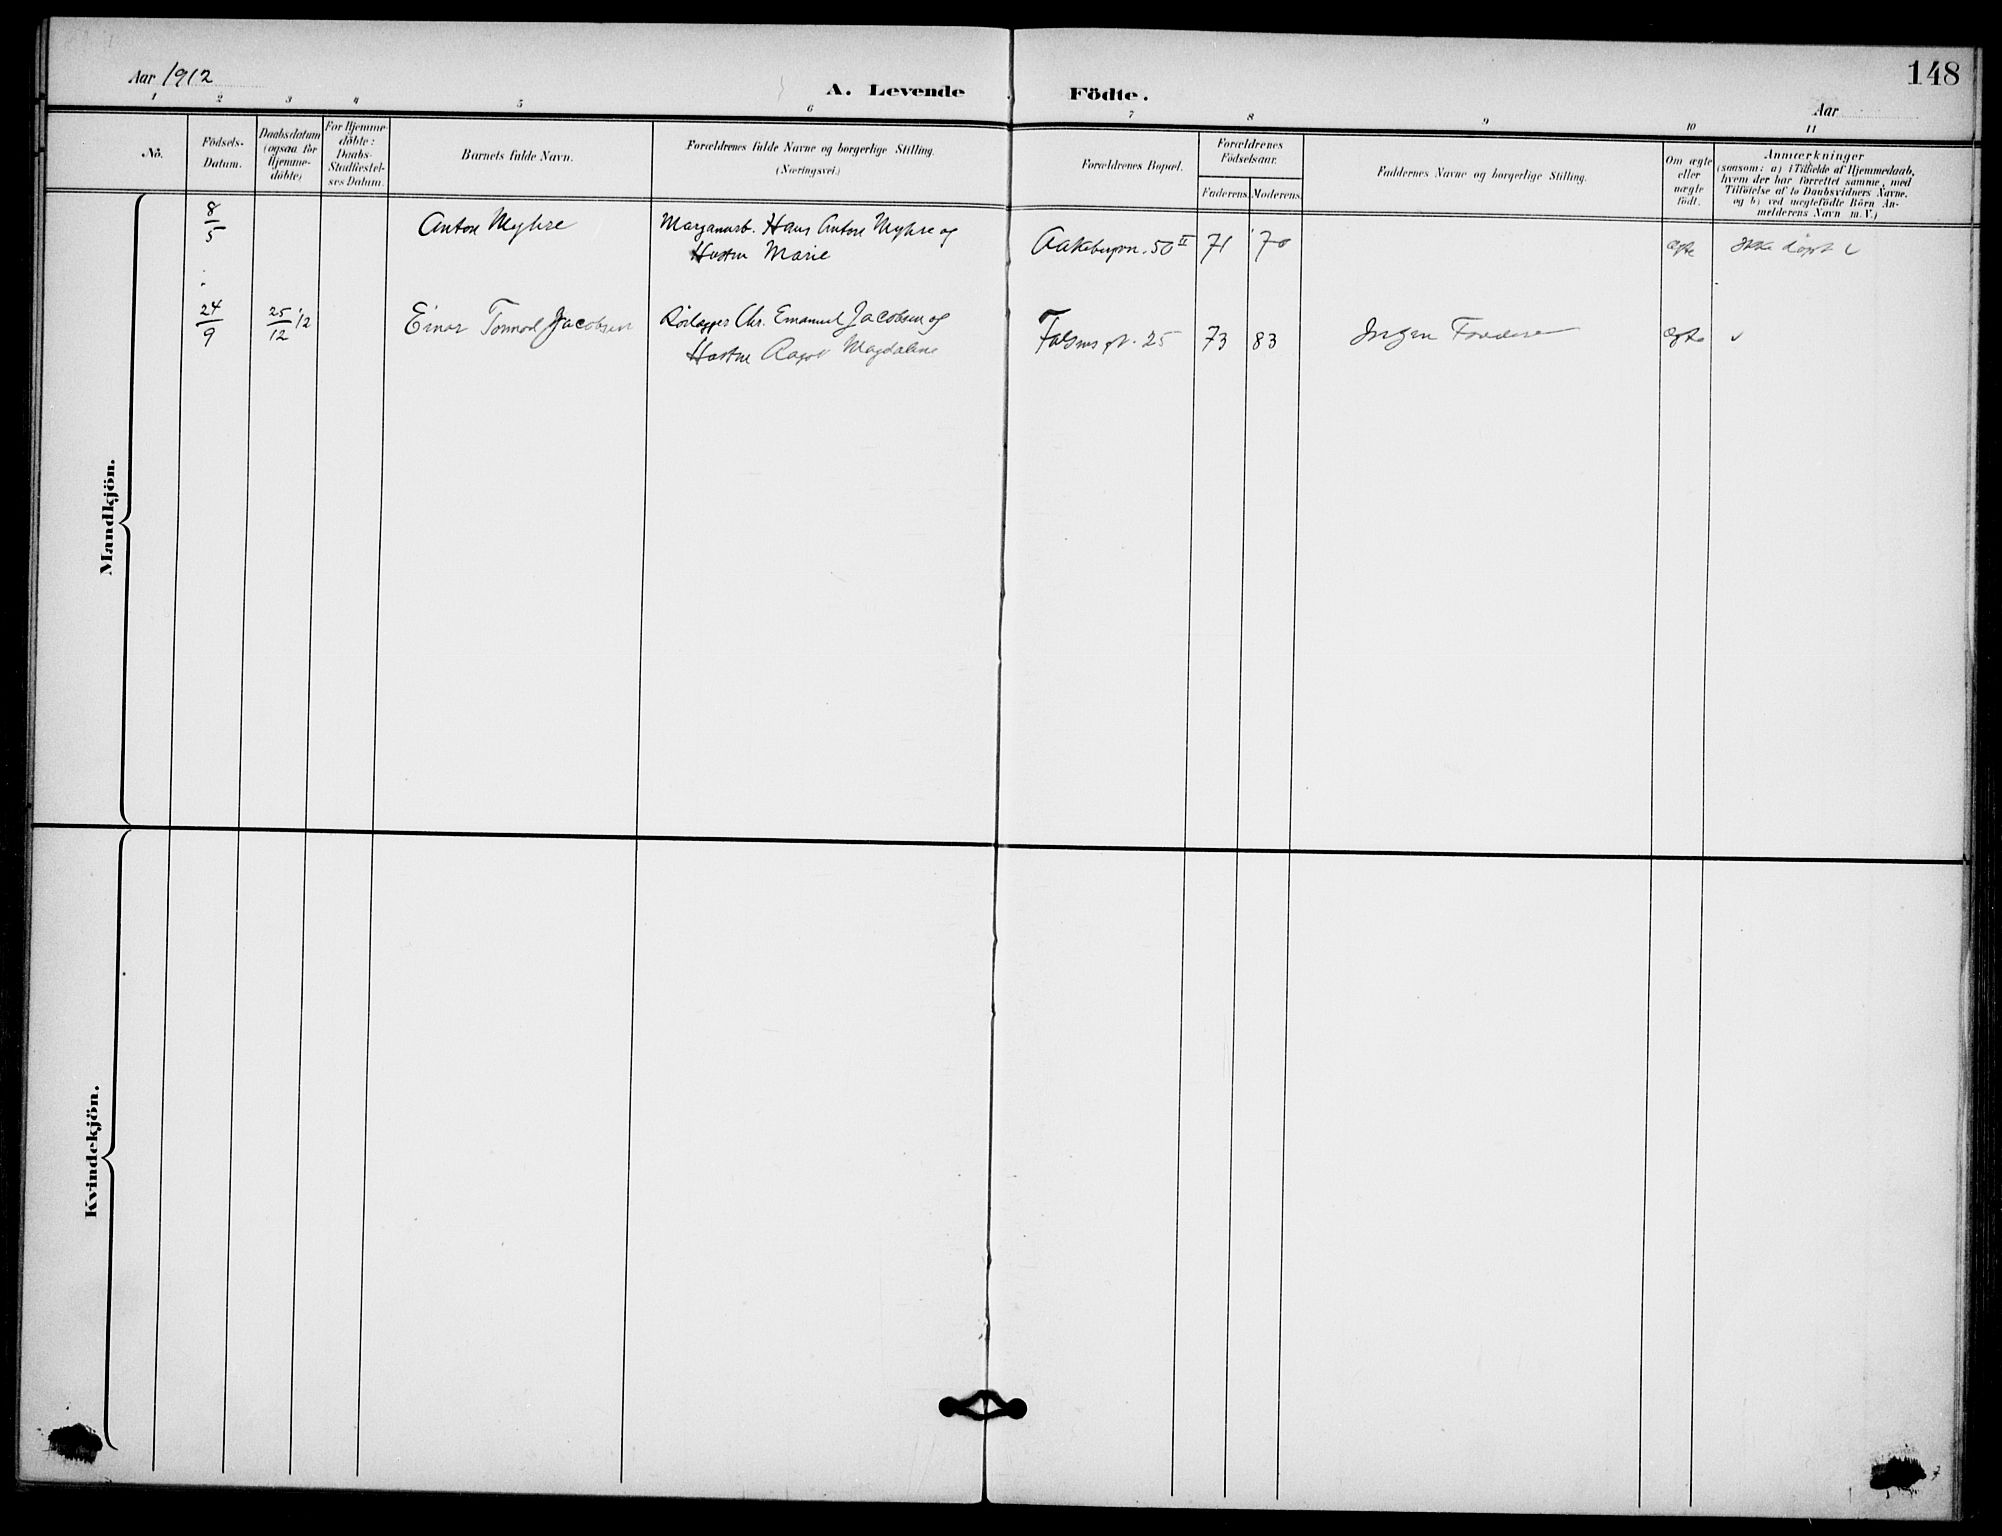 148
Aar 1912
A. Levende Födte.
Aar
1 2 3 4 5 6 7 8 9 10 11
Nö.
Födsels-
Datum.
Daabsdatum
(ogsaa for
Hjemme-
döbte)
For Hjemme-
döbte:
Daabs-
Stadfæstel-
ses Datum.
Barnets fulde Navn.
Forældrenes fulde Navne og borgerlige Stilling.
(Næringsvei.)
Forældrenes Bopæl.
Forældrenes
Födselsaar.
Faderens. Moderens.
Faddernes Navne og borgerlige Stilling.
Om ægte
eller
uægte
födt.
Anmærkninger
(saasom: a) i Tilfælde af Hjemmedaab,
hvem der har forrettet samme, med
Tilföielse af to Daabsvidners Navne.
og b) ved uægtefödte Börn An-
melderens Navn m. V.)
Mandkjön.
8/5 Anton Myhre Hans Anton Myhre og
Hustru Marie
50 II 71 70 ægte Ikke døpt
24/9 25/12 12 Einar Tormod Jacobsen Rörlægger Chr. Emanuel Jacobsen og
Hustru Magdalene
25 73 83 Ingen ægte
Kvindekjön.